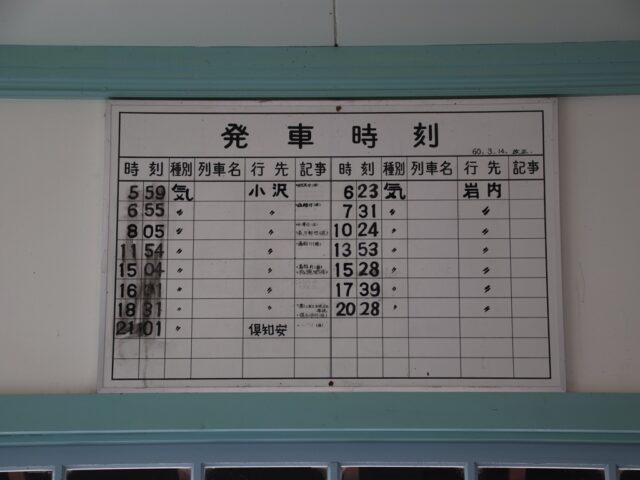 発車時刻
60.3.14.改正.
時刻 種別 列車名 行先 記事 時刻 種別 列車名 行先 記事
5 59 気 小沢 6 23 気 岩内
6 55 〃 〃 7 31 〃 〃
8 05 〃 〃 10 24 〃 〃
11 54 〃 〃 13 53 〃 〃
15 04 〃 〃 15 28 〃 〃
16 〃 〃 17 39 〃 〃
18 31 〃 〃 20 28 〃 〃
21 01 〃 倶知安